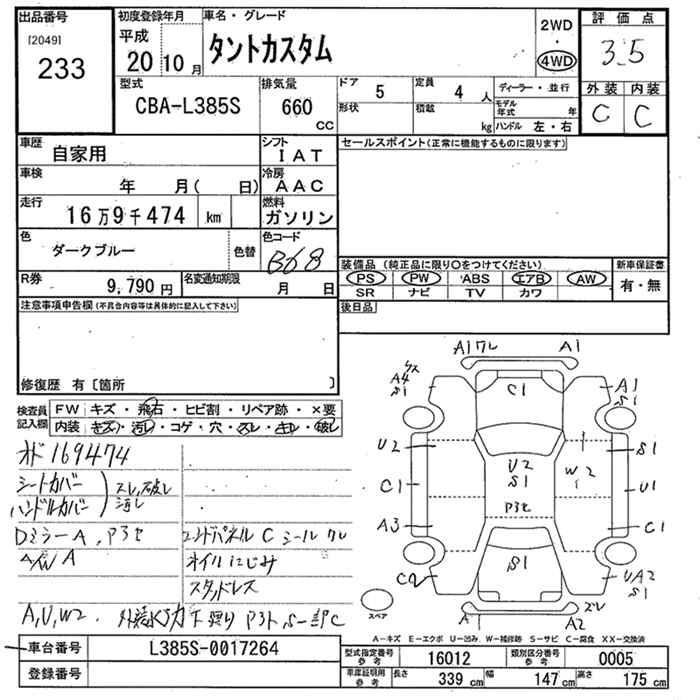 出品番号
[2049]
233
初度登録年月
平成
20 10月
車名・グレード
タントカスタム
2WD
4WD
評価点
3.5
外装 内装
C C
型式
CBA-L385S
排気量
660
CC
ドア 5
形状
定員 4 人
積載 kg
ディーラー・並行
モデル年式 年
ハンドル 左・右
車歴
自家用
シフト
IAT
車検
年 月( 日)
冷房
AAC
走行
16万9千474 km
燃料
ガソリン
色
ダークブルー
色替
色コード
B68
R券
9,790円
名変通知期限
月 日
セールスポイント(正常に機能するものに限ります)
装備品 (純正品に限り○をつけてください)
PS PW ABS エアB AW
SR ナビ TV カワ
新車保証書
有・無
後日品
注意事項申告欄(不具合内容等は具体的に記入して下さい)
修復歴 有〔箇所 〕
検査員
記入欄
FW キズ・飛石・ヒビ割・リペア跡・×要
内装 キズ・汚レ・コゲ・穴・スレ・キレ・破レ
オド 169474
シートカバー
ハンドルカバー
スレ、破レ
汚レ
DミラーA、アタセ
A/W A
エンドパネル C シールワレ
オイルにじみ
スタッドレス
A,U,W2.
A1ワレ A1
A4 S1
C1
A1 S1
U2
C1
A3
U2 S1
アタセ
W2
S1
U1
C1
C2
S1
UA2 S1
ズレ
A1 A2
スペア
A-キズ E-エクボ U-凹み W-補修跡 S-サビ C-腐食 XX-交換済
車台番号
L385S-0017264
登録番号
型式指定番号
参考
16012
類別区分番号
参考
0005
車庫証明用
参考
長さ 339 cm
幅 147 cm
高さ 175 cm